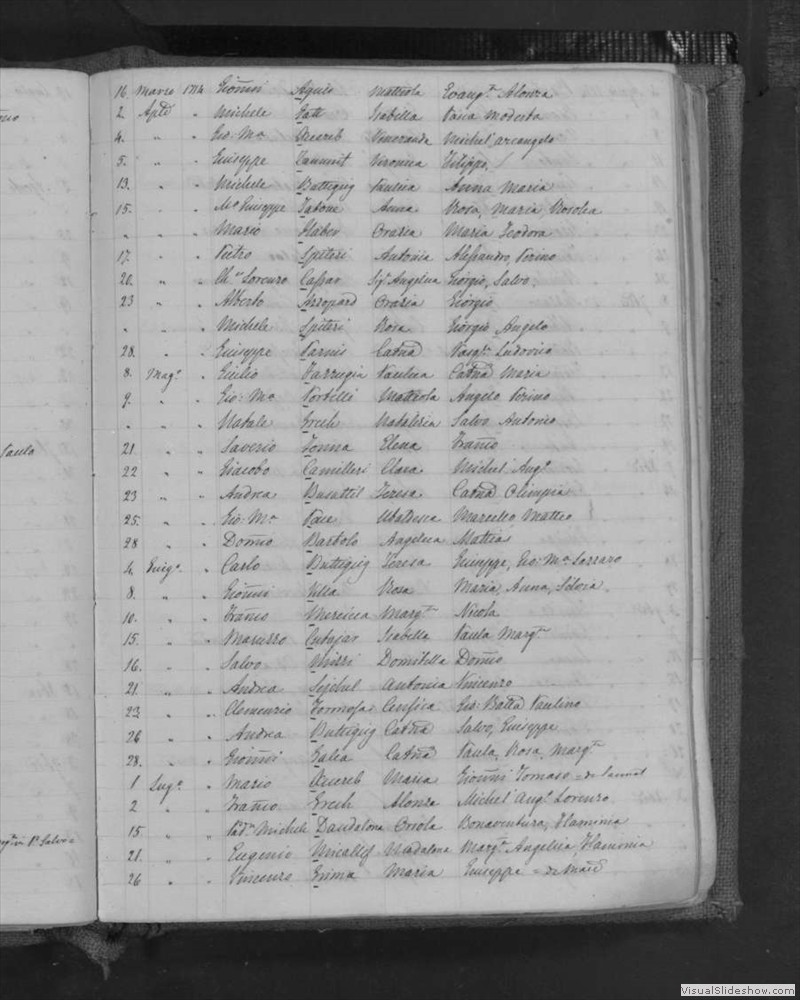 16. Marzo 1714 Gioñni Matteola Evang.ta Alonza
2. Aple " Michele Isabella Paula Modesta
4. " " Gio: Ma. Axereb Veneranda Michel'arcangelo
5. " " Giuseppe Zammit Veronica Filippo
13. " " Michele Buttegieg Paulica Anna Maria
15. " " Giuseppe Anna Rosa, Maria, Rosolea
" " " Mario Haber Oraria Maria Teodora
17. " " Pietro Spiteri Antonia Alessandro, Pierino
20. " " Lorenzo Cassar Angelica Giorgio, Salvo
23 " " Alberto Azzopard Oraria Giorgio
" " " Michele Spiteri Rosa Giorgio Angelo
28. " " Giuseppe Parnis Catña Ludovico
8. Mag.o " Giulio Farrugia Paulica Catña Maria
9. " " Gio: Ma. Portelli Matteola Angelo Pierino
" " " Natale Grech Salvo Antonio
21 " " Saverio Tonna Elena Frañco
22 " " Giacobo Camilleri Clara Michel' Ang.o
23 " " Andrea Busuttil Teresa Catña Olimpia
25. " " Gio: Ma. Pace Ubaldesca Marcello Matteo
28 " " Domco Bartolo Angelica Mattia
4. Giug.o " Carlo Buttigieg Teresa Giuseppe, Gio: Ma. Lazzaro
8. " " Gioñni Vella Rosa Maria, Anna, Silvia
10. " " Frañco Mercieca Marg.ta Nicola
15. " " Maruzzo Cutajar Isabella Paula Marg.ta
16. " " Salvo Mizzi Domitilla Domco
21. " " Andrea Sijibel Antonia Vincenzo
23. " " Clemenzio Formosa Gio: Batta Paulino
26 " " Andrea Buttigieg Catña Salvo, Giuseppe
28. " " Gioñni Galea Catña Paula, Rosa, Marg.ta
1 Lug.o " Mario Axereb Maria Gioñni Tomaso
2 " " Frañco Grech Alonza Michel' Ang.o Lorenzo
15 " " Michele Dandalona Oriola Bonaventura, Flaminia
21. " " Eugenio Micallef Madalena Marg.ta Angelica Flaminia
26 " " Vincenzo Grima Maria Giuseppe
VisualSlideshow.com